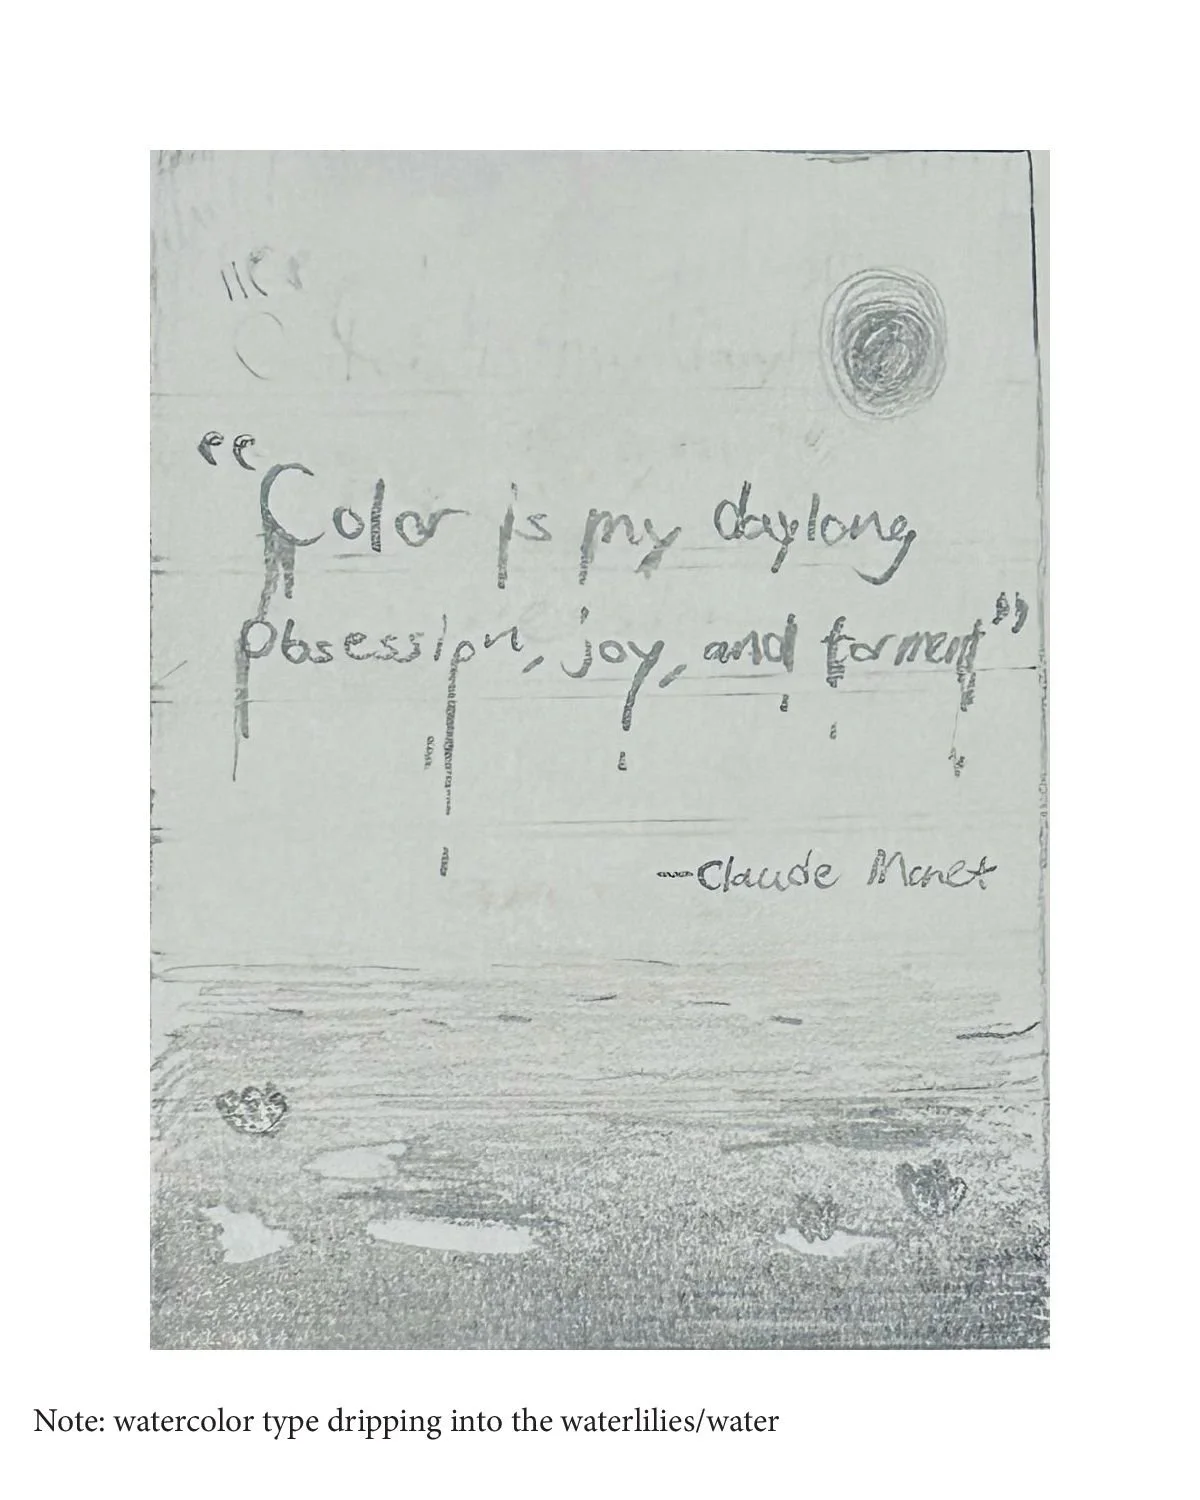 “Color is my daylong
obsession, joy, and torment”
—Claude Monet
Note: watercolor type dripping into the waterlilies/water